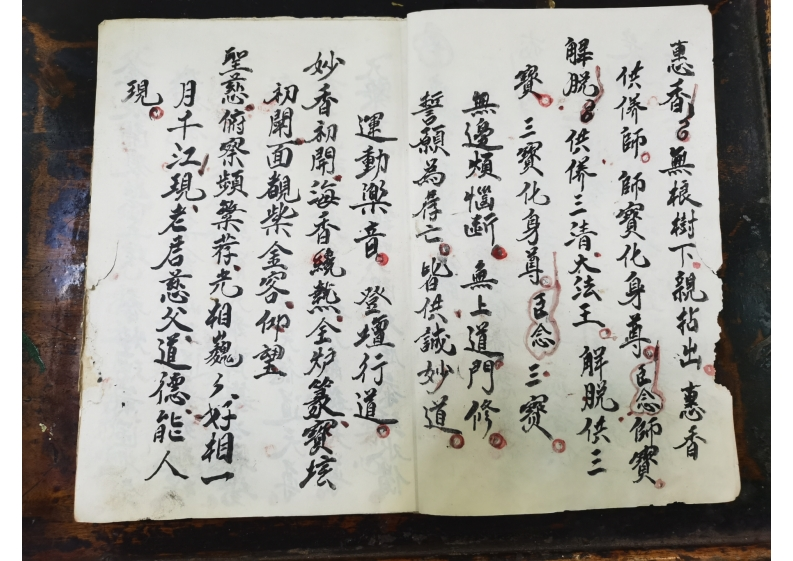 惠香 無根樹下親拈出 惠香
供俻師 師寶化身尊 臣念 師寶
解脱 供俻三清大法王 解脱 供三
寶 三寶化身尊 臣念 三寶
無邊煩惱斷 無上道門修
誓願為荐亡 皆供誠妙道
運動樂音 登壇行道
妙香初開海香繞熱全炉篆寳坛
初開面觀柴金容仰望
聖慈俯察頻繁荐光相巍々好相一
月千江現老君慈父道德能人
現